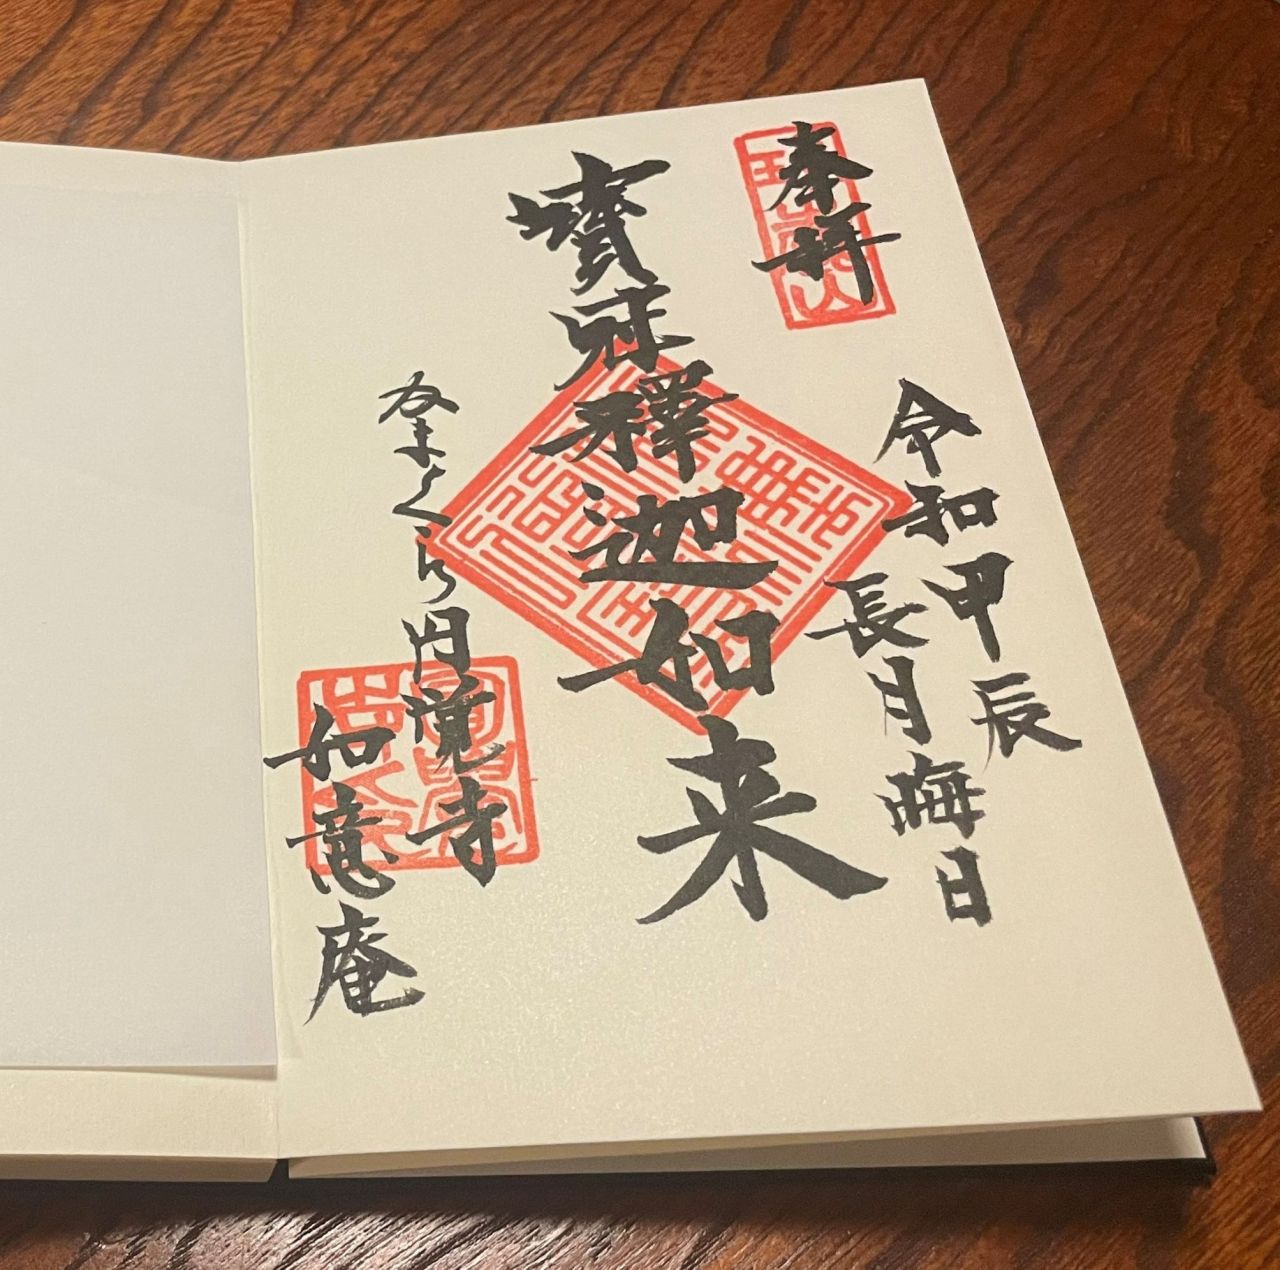 奉拝
令和甲辰
長月晦日
寶冠釋迦如来
かまくら円覚寺
如意庵